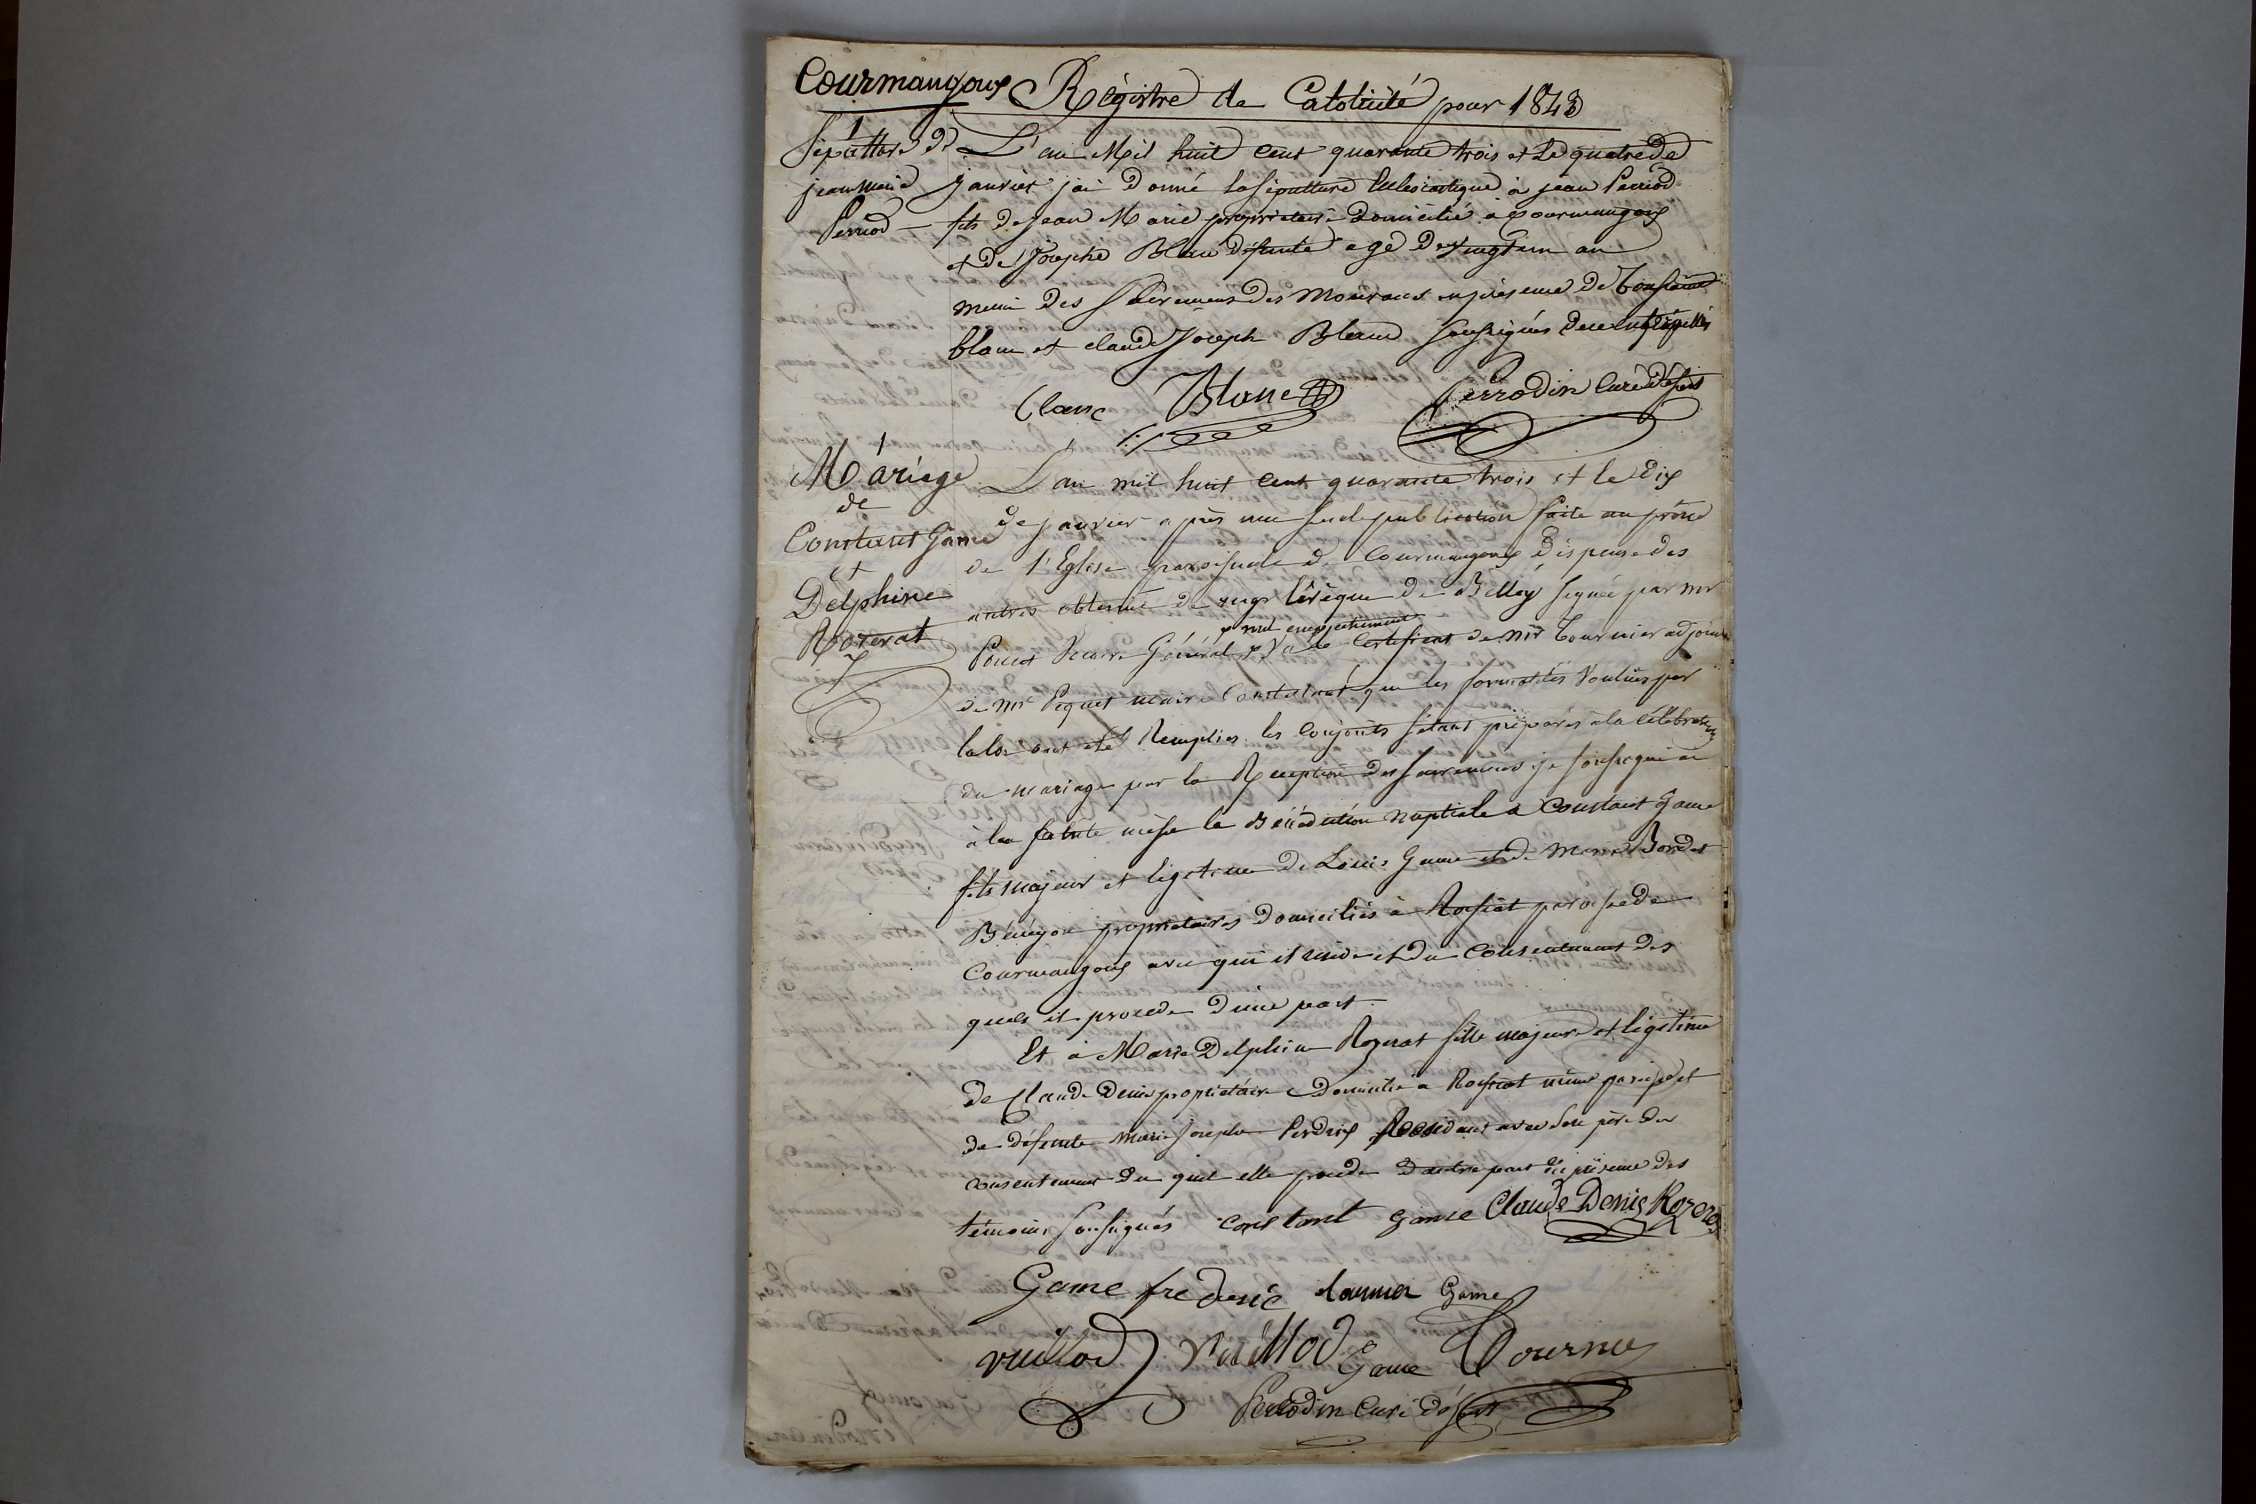 Courmangoux Régistre de Catolicité pour 1843
1
Sépulture de
jean Marie
Perriod
L'an Mil huit cent quarante trois et Le quatre de
janvier jai donné la Sépulture Ecclésiastique à jean Perriod
fils de Jean Marie propriétaire domicilié à Courmangoux
et de Josephe Blanc défunte agé de vingt un an
muni des Sacremens des Mourans en présence de
blanc et claude Joseph Blanc soussignés
Blanc Blanc Perrodin Curé
1
Mariage
de
Constant Game
et
Delphine
Rozerat
L'an mil huit cent quarante trois et le Dix
de janvier après une seule publication faite au prône
de l'Eglise paroissiale de Courmangoux dispense des
autres obtenue de mgr l'évêque de Belley signée par mr
Poncet Vicaire Général, Vu le certificat de mr Tournier adjoint
nul empechement
de mr Piquet maire constatant que les formalités voulues par
la loi ont été Remplies. les conjoints s'étant préparés à la célébration
du mariage par la Réception des Sacremens je soussigné ai
à la sainte messe la Bénédiction nuptiale à Constant Game
fils majeur et légitime de Louis Game et de Marie
propriétaires domiciliés à Rossiat paroisse de
Courmangoux avec qui il réside et du consentement des
quels il procede d'une part.
Et à Marie Delphine Rozerat fille majeure et légitime
de Claude Denis propriétaire domicilié à Rossiat même paroisse et
de défunte Marie Josephe Perdrix Résidant avec son père du
consentement du quel elle procede d'autre part en présence des
témoins soussignés constant game Claude Denis Rozerat
Game frederic Game
vuillod Vuillod Game Tournier
Perrodin Curé